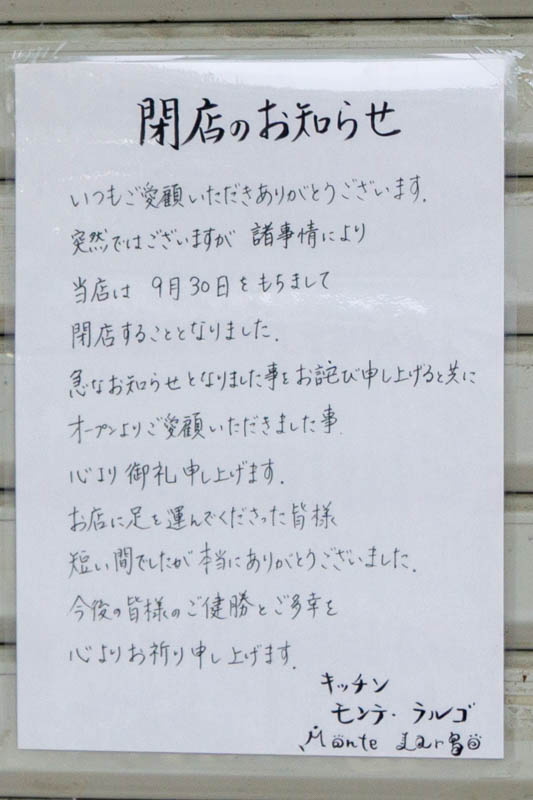 閉店のお知らせ
いつもご愛顧いただきありがとうございます.
突然ではございますが 諸事情により
当店は 9月30日をもちまして
閉店することとなりました.
急なお知らせとなりました事をお詫び申し上げると共に
オープンよりご愛顧いただきました事.
心より御礼申し上げます.
お店に足を運んでくださった皆様
短い間でしたが本当にありがとうございました.
今後の皆様のご健勝とご多幸を
心よりお祈り申し上げます.
キッチン
モンテ・ラルゴ
Monte Largo